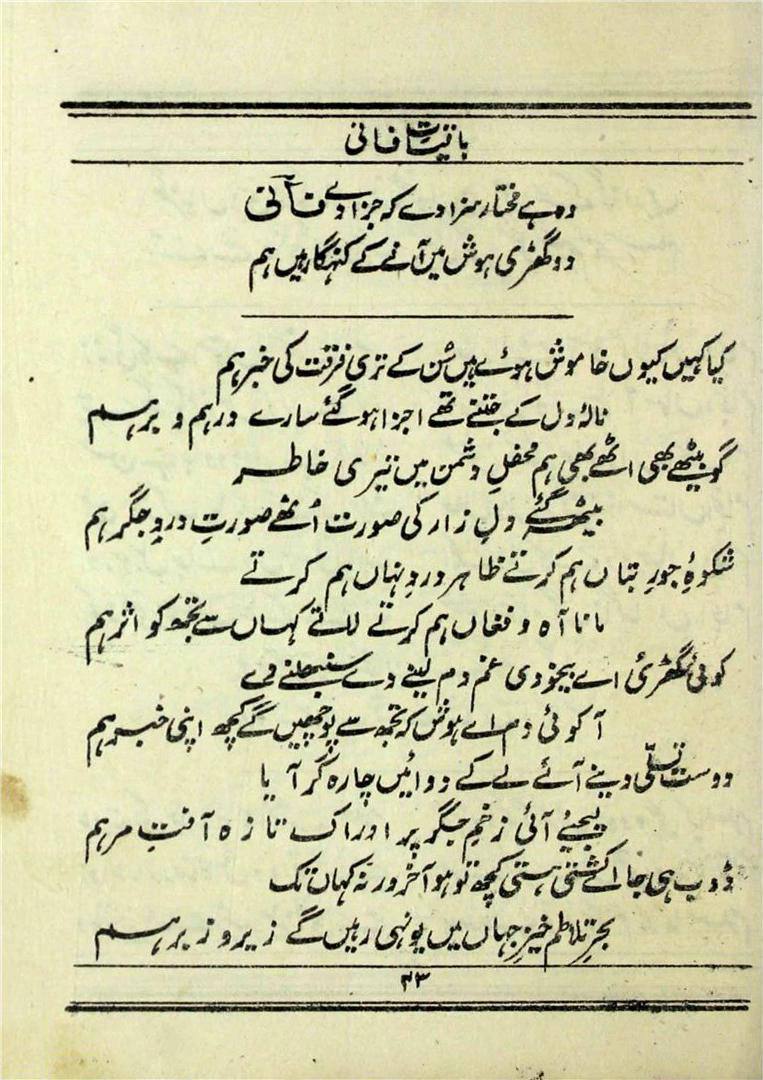 باقیاتِ فانی
وہ ہے مختار سزا دے کہ جزا دے فانؔی
دو گھڑی ہوش میں آنے کے گنہگار ہیں ہم
کیا کہیں کیوں خاموش ہوئے ہیں سُن کے تری فرقت کی خبر ہم
نالۂ دل کے جتنے تھے اجزا ہو گئے سارے درہم و برہم
گو بیٹھے بھی اٹھے بھی ہم محفلِ دشمن میں تیری خاطر
بیٹھ گئے دلِ زار کی صورت اُٹھے صورتِ دردِ جگر ہم
شکوۂ جورِ بتاں ہم کرتے ظاہر دردِ نہاں ہم کرتے
مانا آہ و فغاں ہم کرتے لاتے کہاں سے تجھ کو اثر ہم
کوئی گھڑی اے بیخودی غم دم لینے دے سنبھلنے دے
آ کوئی دم اے ہوش کہ تجھ سے پوچھیں گے کچھ اپنی خبر ہم
دوست تسلّی دینے آئے لے کے دوائیں چارہ گر آیا
لیجیے آئی زخمِ جگر پر اور اک تازہ آفت مرہم
ڈوب ہی جا اے کشتی ہستی کچھ تو ہو آخر ورنہ کہاں تک
بحرِ تلاطم خیزِ جہاں میں یونہی رہیں گے زیر و زبر ہم
۴۳